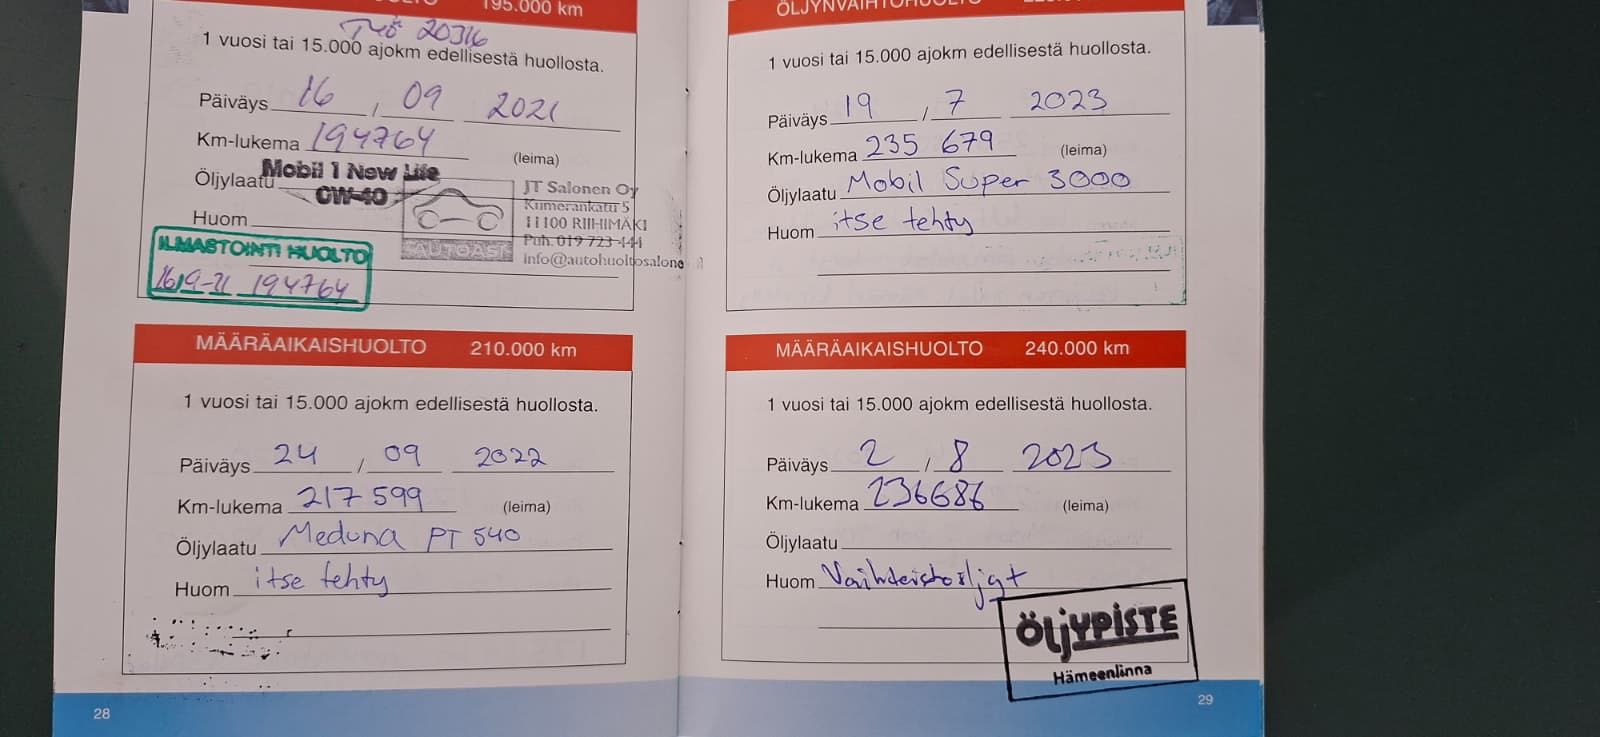 195.000 km
Työ 20316
1 vuosi tai 15.000 ajokm edellisestä huollosta.
Päiväys 16 / 09 2021
Km-lukema 194764 (leima)
Öljylaatu Mobil 1 New Life
0W-40
Huom
JT Salonen Oy
Kumerankatu 5
11100 RIIHIMÄKI
Puh. 019 723 444
info@autohuoltosalone
AUTOASI
ILMASTOINTI HUOLTO
16/9-21 194764
MÄÄRÄAIKAISHUOLTO 210.000 km
1 vuosi tai 15.000 ajokm edellisestä huollosta.
Päiväys 24 / 09 2022
Km-lukema 217 599 (leima)
Öljylaatu Meduna PT 540
Huom itse tehty
28
ÖLJYNVAIHTOHUOLTO
1 vuosi tai 15.000 ajokm edellisestä huollosta.
Päiväys 19 / 7 2023
Km-lukema 235 679 (leima)
Öljylaatu Mobil Super 3000
Huom itse tehty
MÄÄRÄAIKAISHUOLTO 240.000 km
1 vuosi tai 15.000 ajokm edellisestä huollosta.
Päiväys 2 / 8 2023
Km-lukema 236686 (leima)
Öljylaatu
Huom Vaihdeistoöljyt
ÖLJYPISTE
Hämeenlinna
29